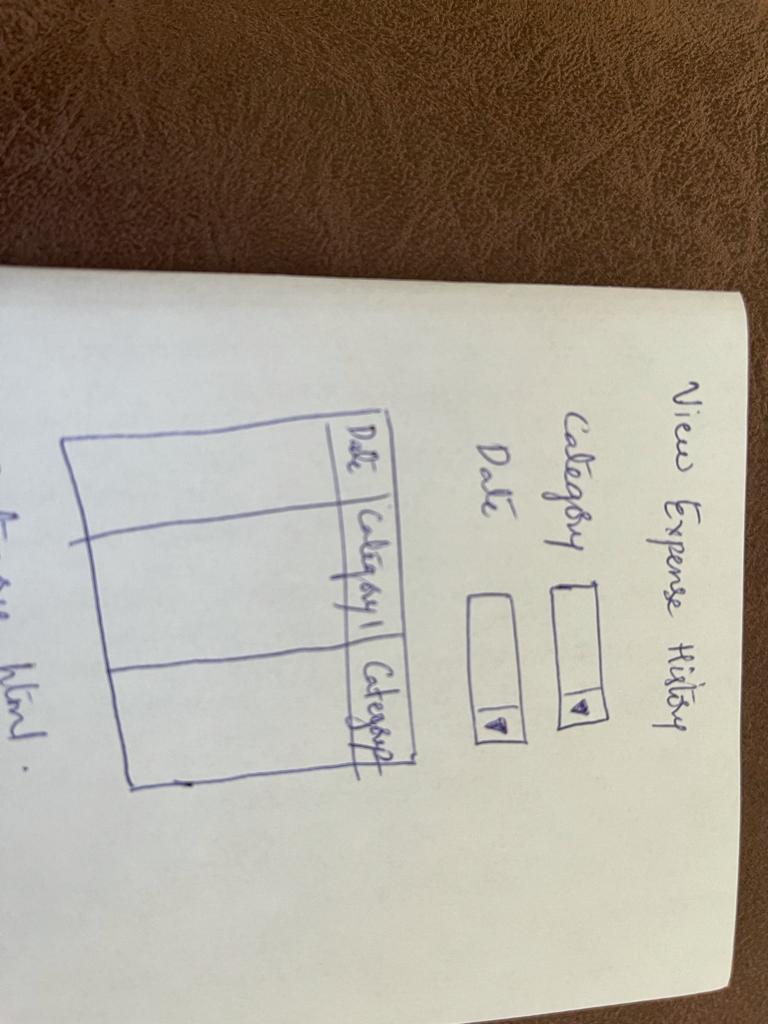 View Expense History
Category
Date
Date Category1 Category2
html.